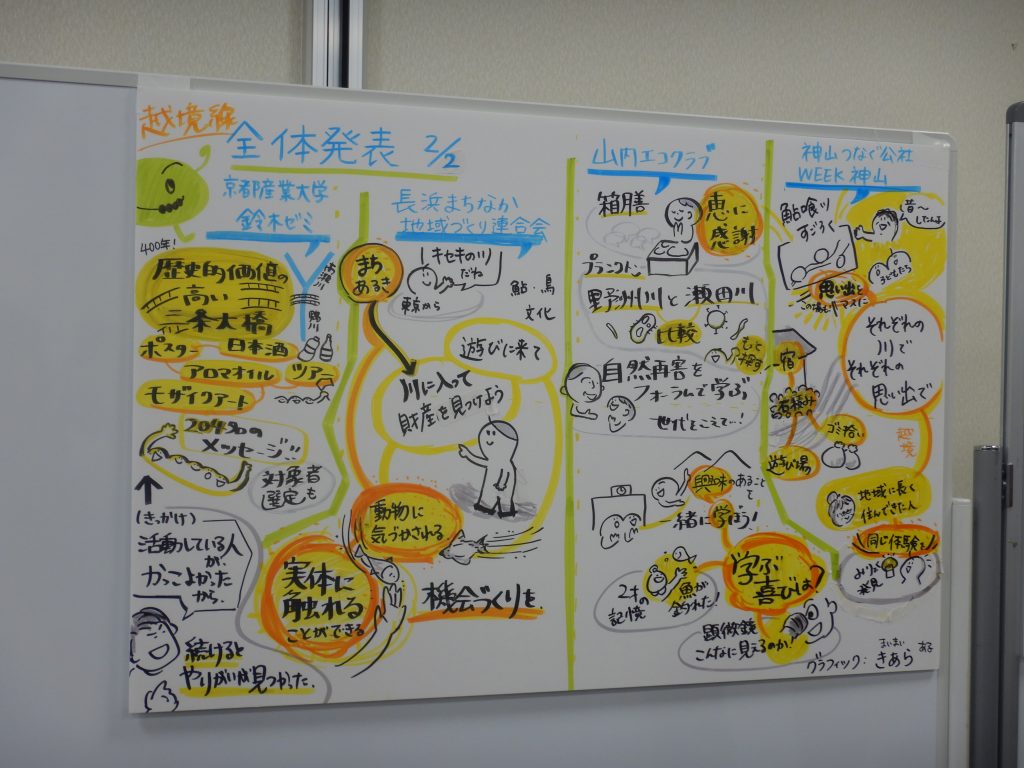 越境線
全体発表 2/2
京都産業大学
鈴木ゼミ
400年!
歴史的価値の
高い
二条大橋
鴨川
ポスター
日本酒
アロマオイル
ツアー
モザイクアート
2045年の
メッセージ
対象者
選定も
(きっかけ)
活動している人
が、
かっこよかった
から。
続けると
やりがいが見つかった。
長浜まちなか
地域づくり連合会
まち
あるき
キセキの川
だね
東京から
鮎・鳥
文化
遊びに来て
川に入って
財産を見つけよう
動物に
気づかされる
実体に
触れる
ことができる
機会づくりを
山内エコクラブ
箱膳
恵に
感謝
プランクトン
野洲川と瀬田川
比較
もっと
自然再害を
フォーラムで学ぶ
世代をこえて…
興味のあること
て
一緒に学ぼう!
2才の
記憶
魚が
釣れた!
学ぶ
喜びは?
顕微鏡
こんなに見えるのか!
神山つなぐ公社
WEEK神山
鮎喰川
すごろく
昔〜
したんよ
子どもたち
思い出を
マスに
それぞれの
川で
それぞれの
思い出で
宿
石積み
ゴミ拾い
遊び場
越境
地域に長く
住んできた人
同じ体験を
みりょく
発見
グラフィック: きあら